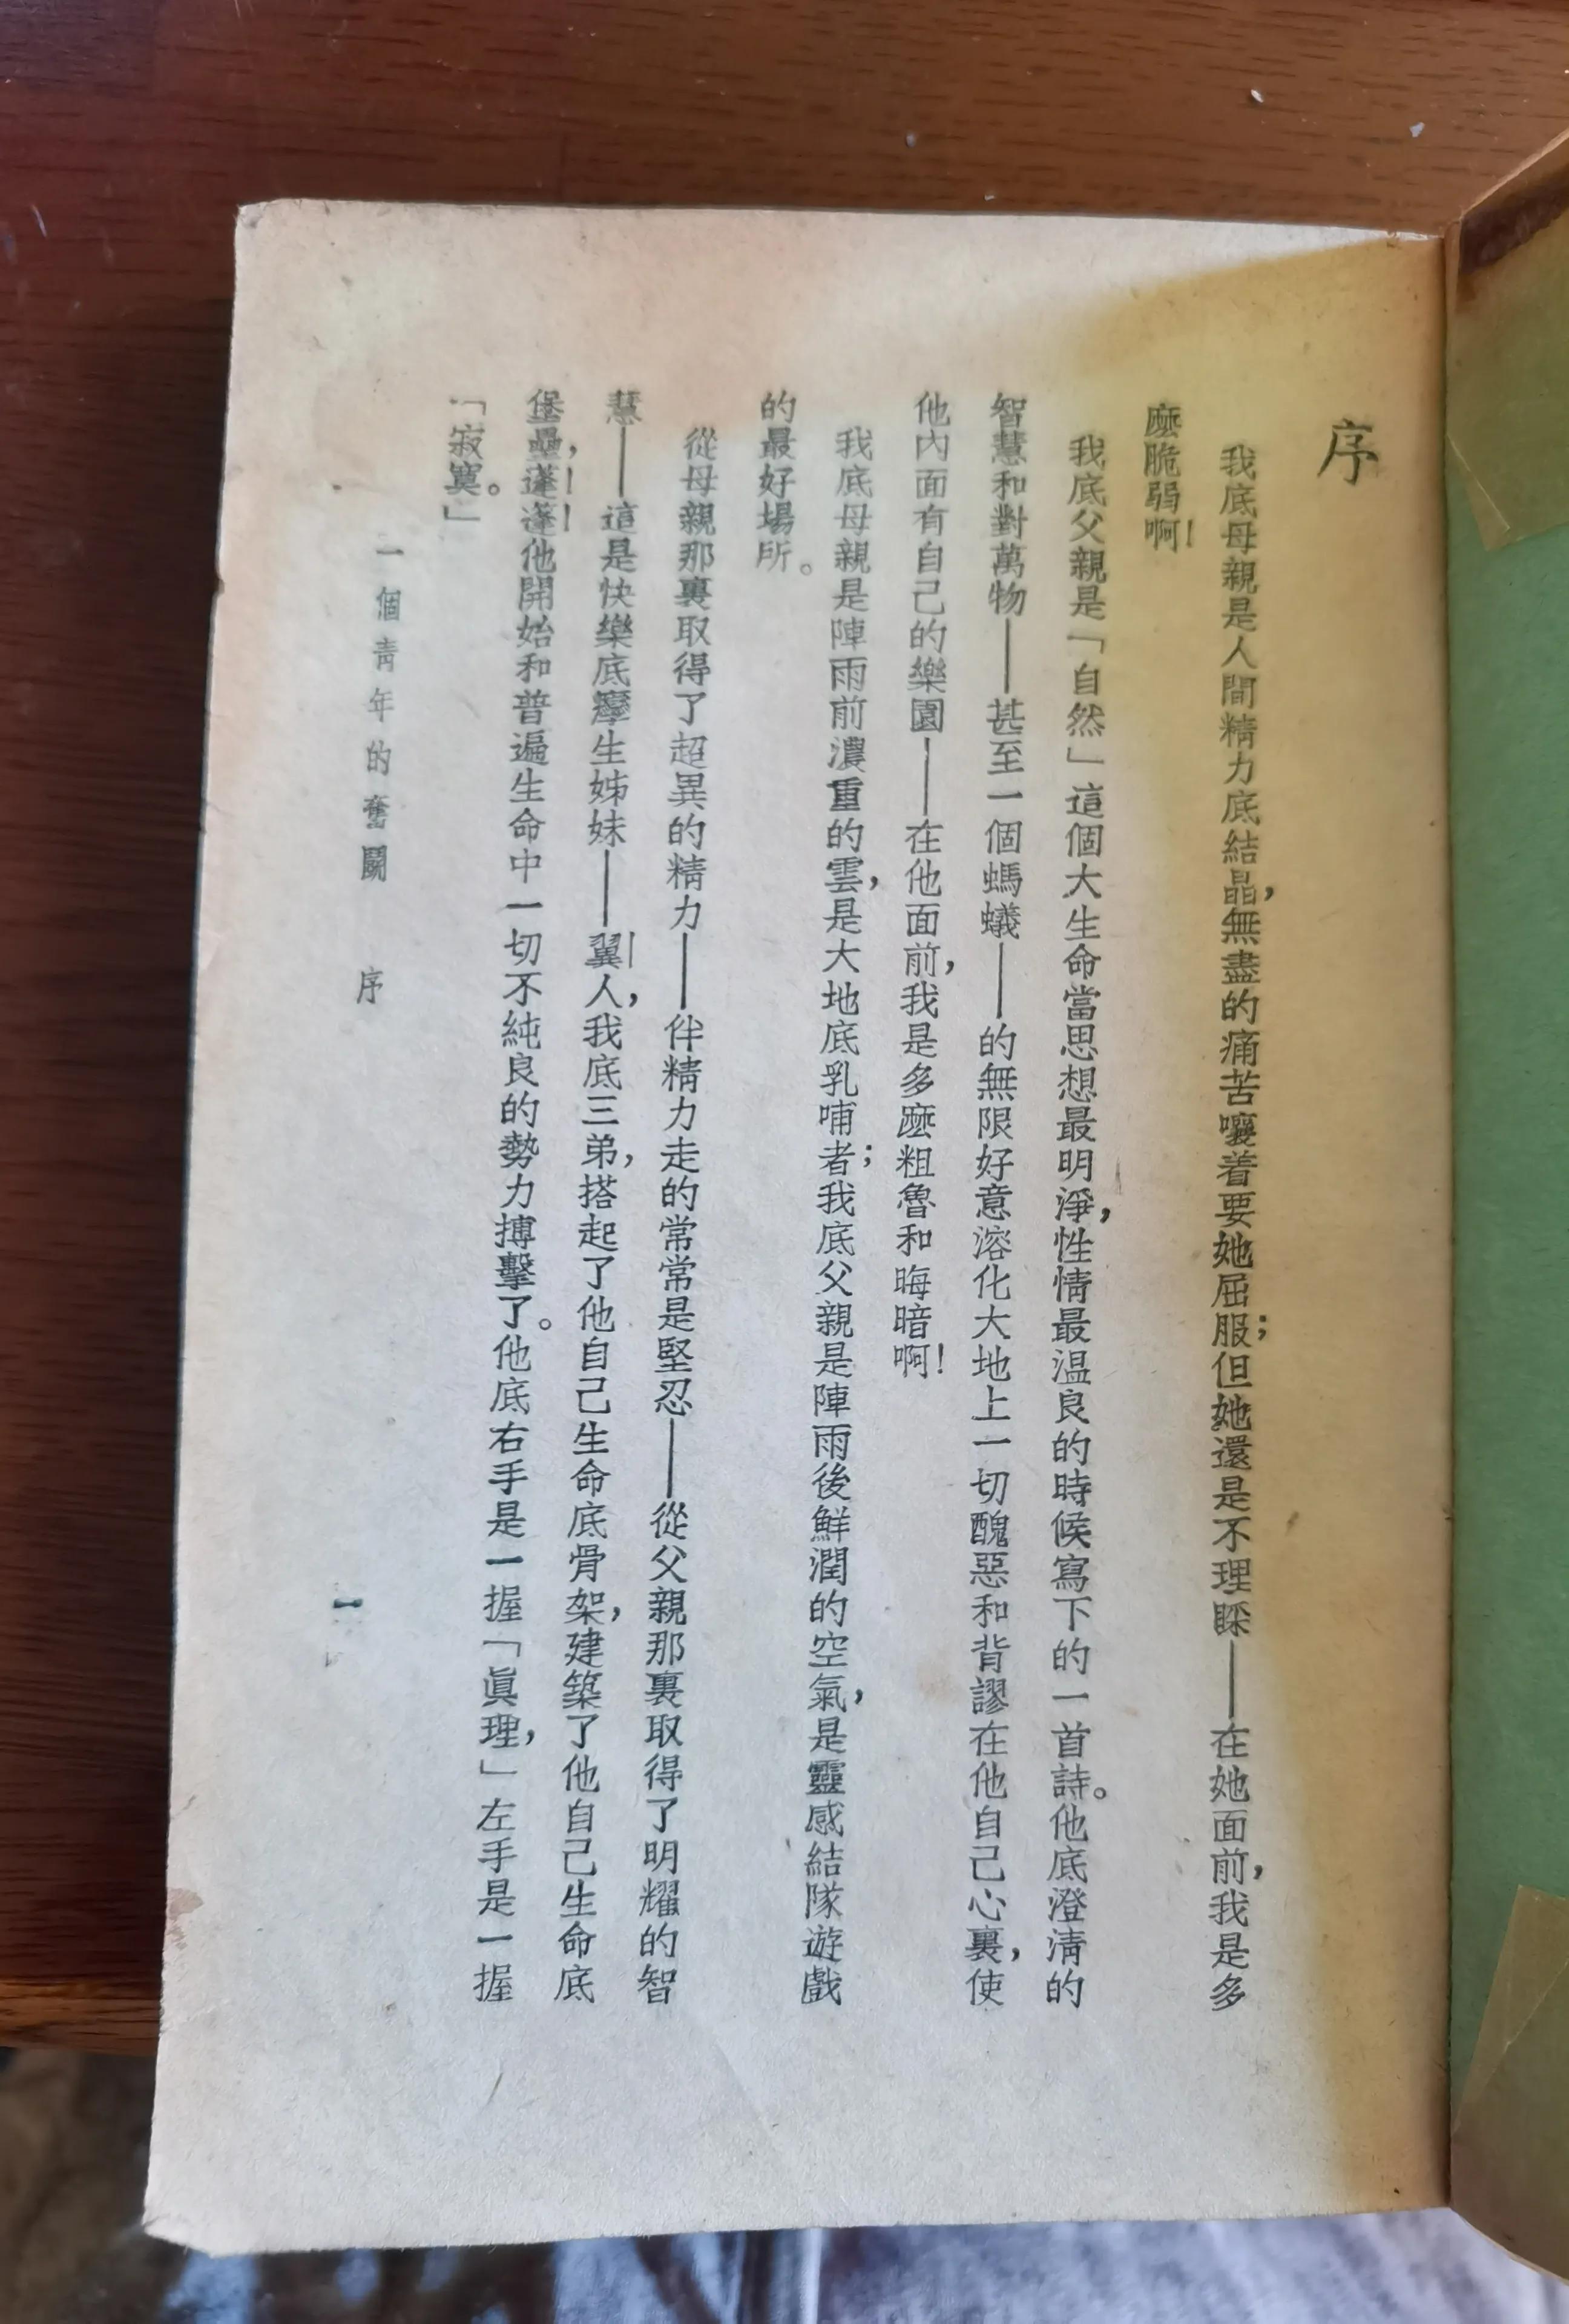 序
我底母親是人間精力底結晶，無盡的痛苦嚷着要她屈服；但她還是不理睬——在她面前，我是多
麽脆弱啊！
我底父親是「自然」這個大生命當思想最明淨，性情最温良的時候寫下的一首詩。他底澄清的
智慧和對萬物——甚至一個螞蟻——的無限好意溶化大地上一切醜惡和背謬在他自己心裏，使
他內面有自己的樂園——在他面前，我是多麽粗魯和晦暗啊！
我底母親是陣雨前濃重的雲，是大地底乳哺者；我底父親是陣雨後鮮潤的空氣，是靈感結隊遊戲
的最好場所。
從母親那裏取得了超異的精力——伴精力走的常常是堅忍——從父親那裏取得了明耀的智
慧——這是快樂底孿生姊妹——翼人，我底三弟，搭起了他自己生命底骨架，建築了他自己生命底
堡壘，蓬蓬他開始和普遍生命中一切不純良的勢力搏擊了。他底右手是一握「眞理，」左手是一握
「寂寞。」
一個青年的奮鬭　序
一